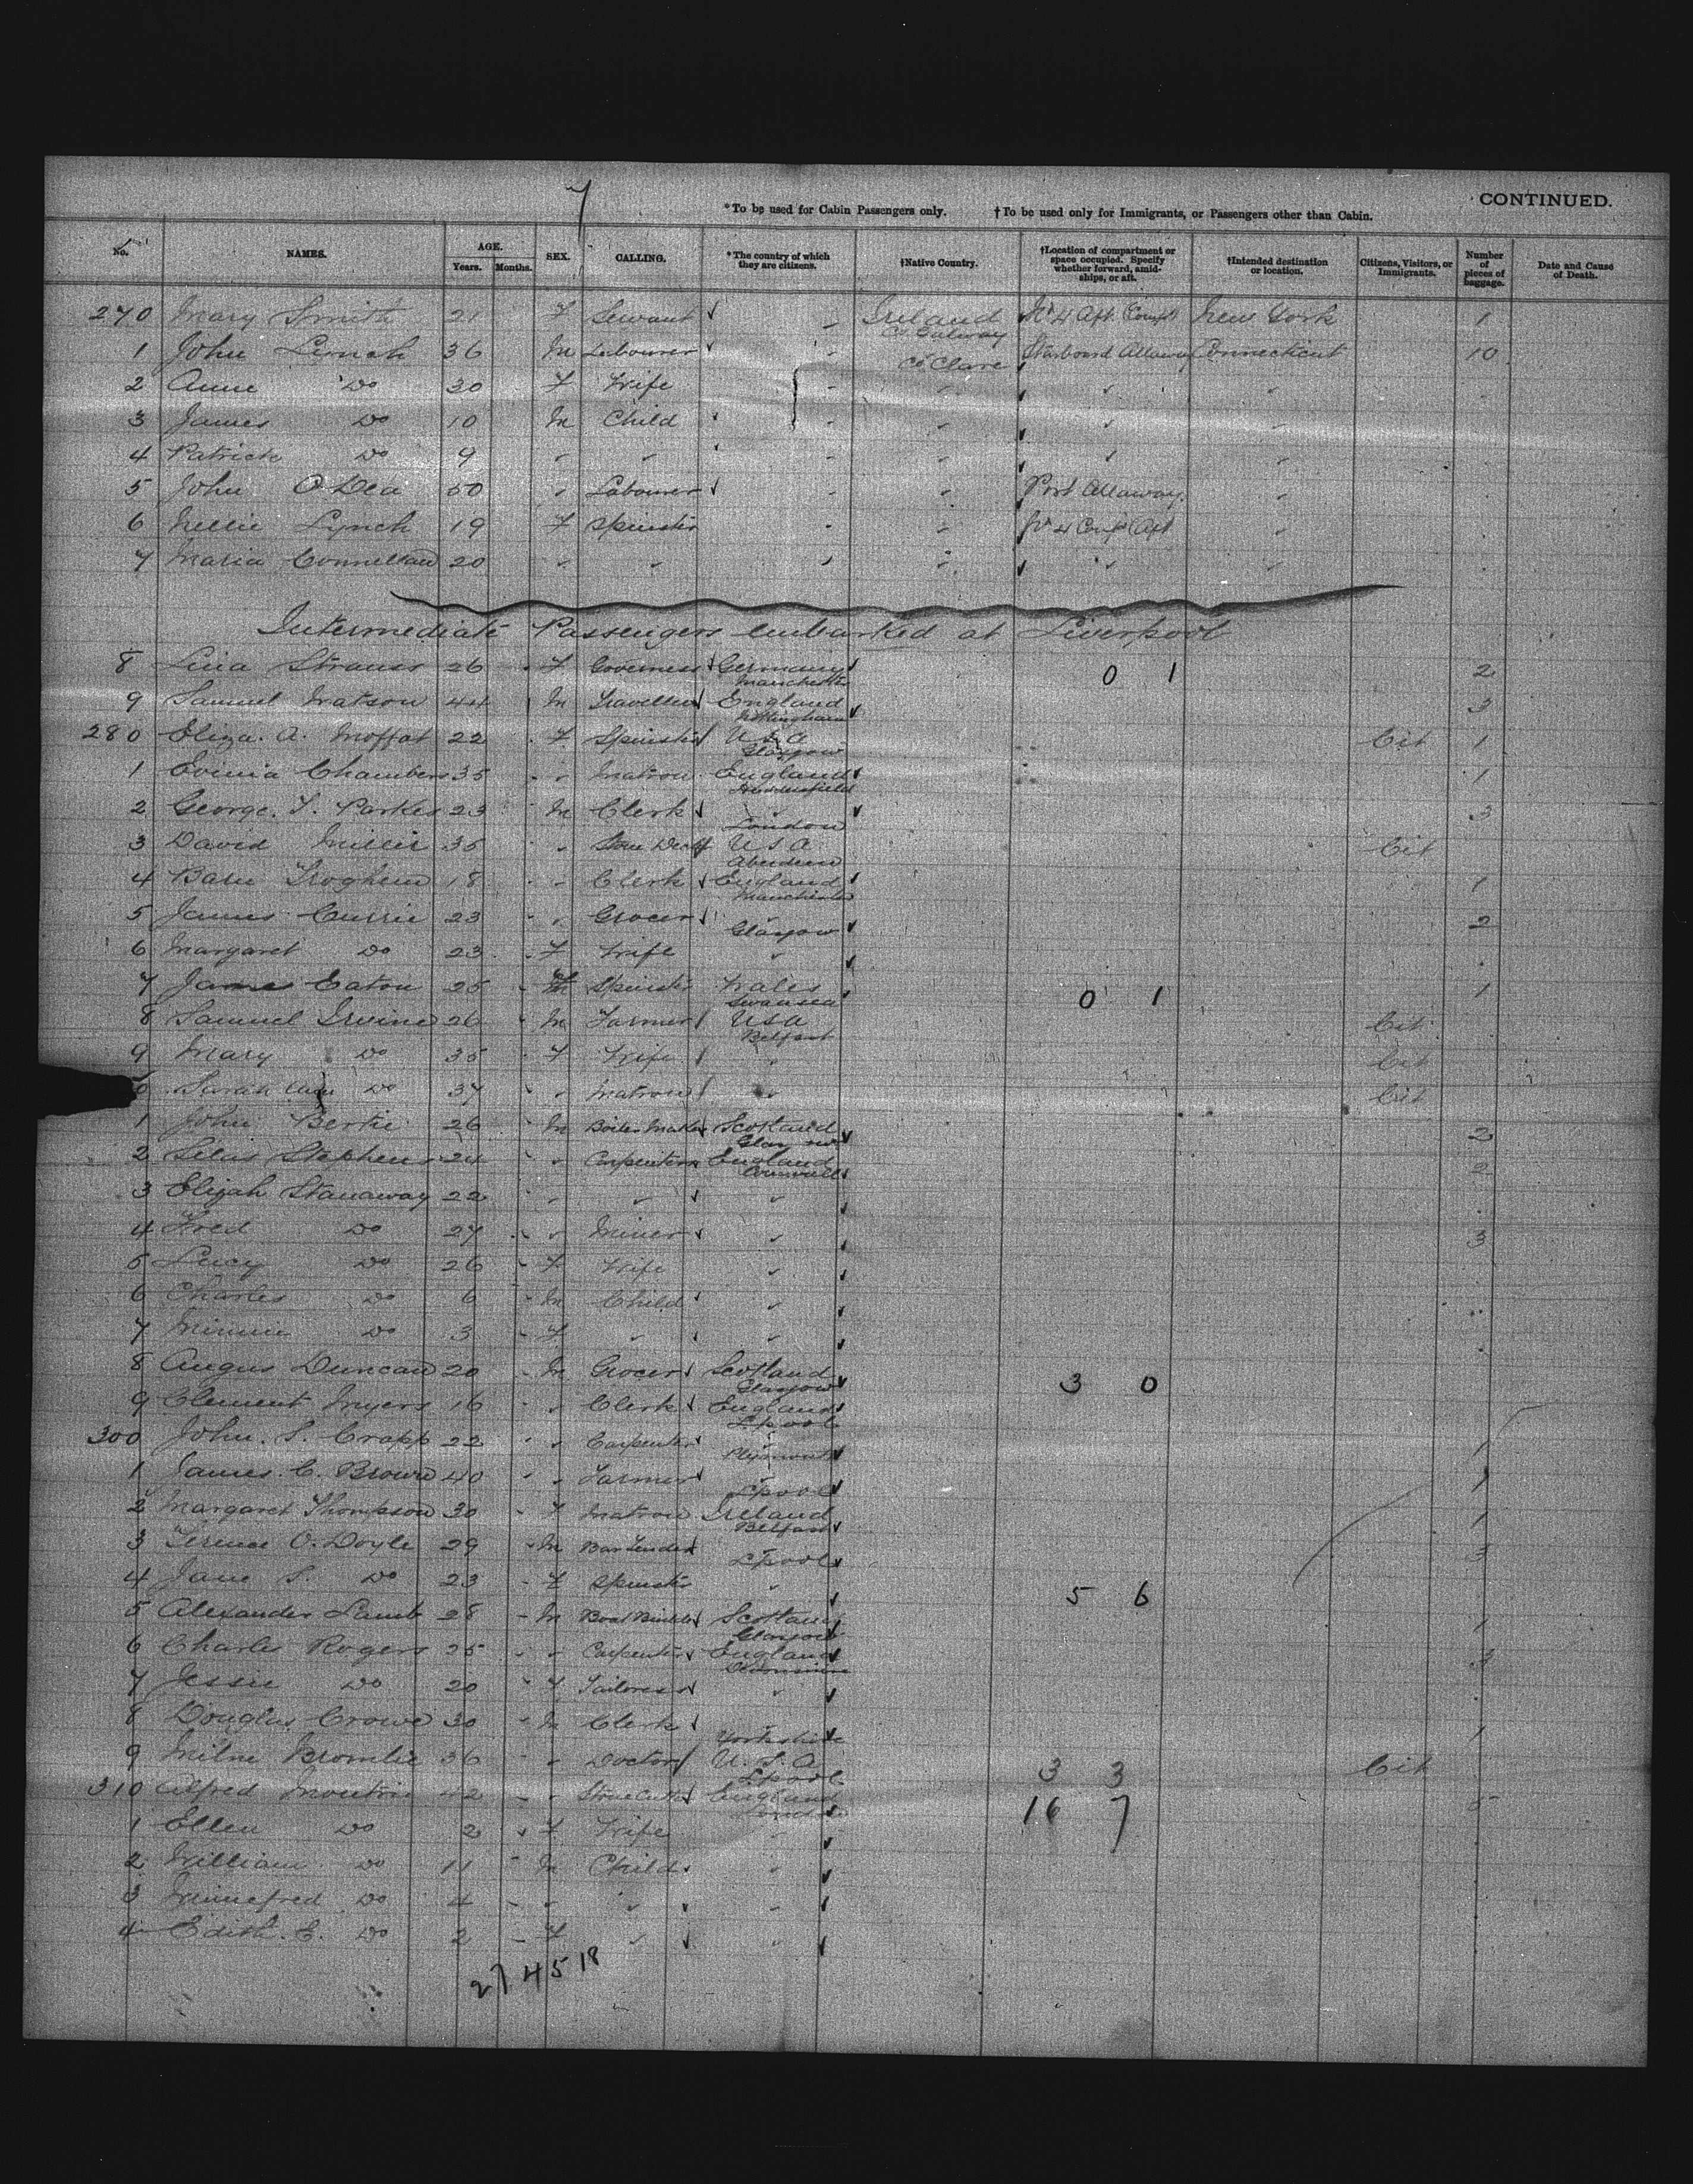 7
*To be used for Cabin Passengers only. †To be used only for Immigrants, or Passengers other than Cabin. CONTINUED.
No. NAMES. AGE. Years. Months. SEX. CALLING. *The country of which they are citizens. †Native Country. †Location of compartment or space occupied. Specify whether forward, amidships, or aft. †Intended destination or location. Citizens, Visitors, or Immigrants. Number of pieces of baggage. Date and Cause of Death.
270 Mary Smith 21 F Servant Ireland Co Galway No 4 Aft Compt New York 1
1 John Lynch 36 M Labourer Co Clare Starboard Allaway Connecticut 10
2 Anne Do 30 F Wife
3 James Do 10 M Child
4 Patrick Do 9
5 John O'Dea 50 Labourer Port Allaway
6 Nellie Lynch 19 F Spinster No 4 Compt Aft
7 Maria 20
Intermediate Passengers embarked at Liverpool
8 Lina Strauss 26 F Governess Germany Manchester 0 1 2
9 Samuel Watson 44 M Traveller England Nottingham 3
280 Eliza. A. Moffat 22 F Spinster USA Glasgow Cit 1
1 Chambers 35 Matron England Huddersfield 1
2 George. F. Parkes 23 M Clerk London 3
3 David Miller 35 USA Aberdeen Cit
4 18 Clerk England Manchester 1
5 James Currie 23 Grocer Glasgow 2
6 Margaret Do 23 F Wife
7 Eaton 25 Spinster Wales Swansea 0 1 1
8 Samuel Irvine 26 M Farmer USA Belfast Cit
9 Mary Do 35 F Wife Cit
0 Sarah Ann Do 37 Matron Cit
1 John Bertie 26 M Boiler Maker Scotland Glasgow 2
2 Silas Stephens 24 Carpenter England Cornwall 2
3 Elijah Stanaway 22
4 Fred Do 27 Miner 3
5 Lucy Do 26 F Wife
6 Charles Do 6 M Child
7 Minnie Do 3 F
8 Angus Duncan 20 M Grocer Scotland Glasgow 3 0
9 Clement Myers 16 Clerk England Lpool
300 John. S. Crapp 22 Carpenter Plymouth 1
1 James. C. Brown 40 Farmer Lpool 1
2 Margaret Thompson 30 F Matron Ireland Belfast 1
3 Terence O. Doyle 29 M Bar Tender Lpool 3
4 Jane S. Do 23 F Spinster 5 6
5 Alexander Lamb 28 M Scotland Glasgow 1
6 Charles Rogers 25 Carpenter England 3
7 Jessie Do 20 F Tailoress
8 Douglas Crowe 30 M Clerk Yorkshire 1
9 Milne 36 Doctor U. S. A Lpool 3 3 Cit
310 Alfred 42 Stone Cutter England London 16 7 5
1 Ellen Do F Wife
2 William Do 11 M Child
3 Do 4
4 Edith. E. Do 2 F
27 45 18